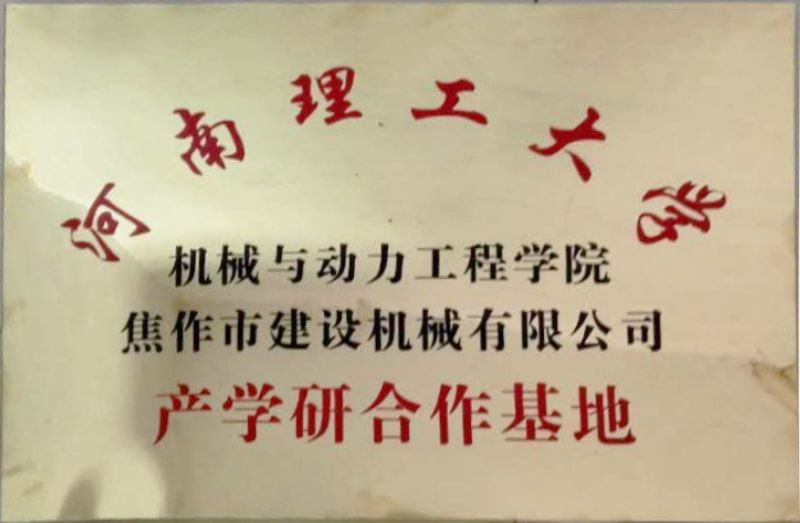 河南理工大学
机械与动力工程学院
焦作市建设机械有限公司
产学研合作基地